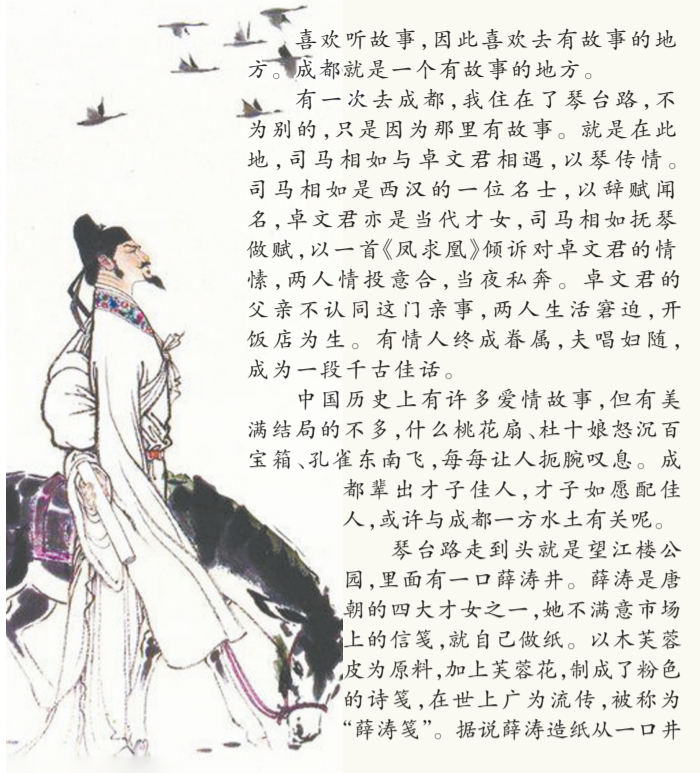 喜欢听故事,因此喜欢去有故事的地
方。成都就是一个有故事的地方。
有一次去成都,我住在了琴台路,不
为别的,只是因为那里有故事。就是在此
地,司马相如与卓文君相遇,以琴传情。
司马相如是西汉的一位名士,以辞赋闻
名,卓文君亦是当代才女,司马相如抚琴
做赋,以一首《凤求凰》倾诉对卓文君的情
愫,两人情投意合,当夜私奔。卓文君的
父亲不认同这门亲事,两人生活窘迫,开
饭店为生。有情人终成眷属,夫唱妇随,
成为一段千古佳话。
中国历史上有许多爱情故事,但有美
满结局的不多,什么桃花扇、杜十娘怒沉百
宝箱、孔雀东南飞,每每让人扼腕叹息。成
都辈出才子佳人,才子如愿配佳
人,或许与成都一方水土有关呢。
琴台路走到头就是望江楼公
园,里面有一口薛涛井。薛涛是唐
朝的四大才女之一,她不满意市场
上的信笺,就自己做纸。以木芙蓉
皮为原料,加上芙蓉花,制成了粉色
的诗笺,在世上广为流传,被称为
“薛涛笺”。据说薛涛造纸从一口井